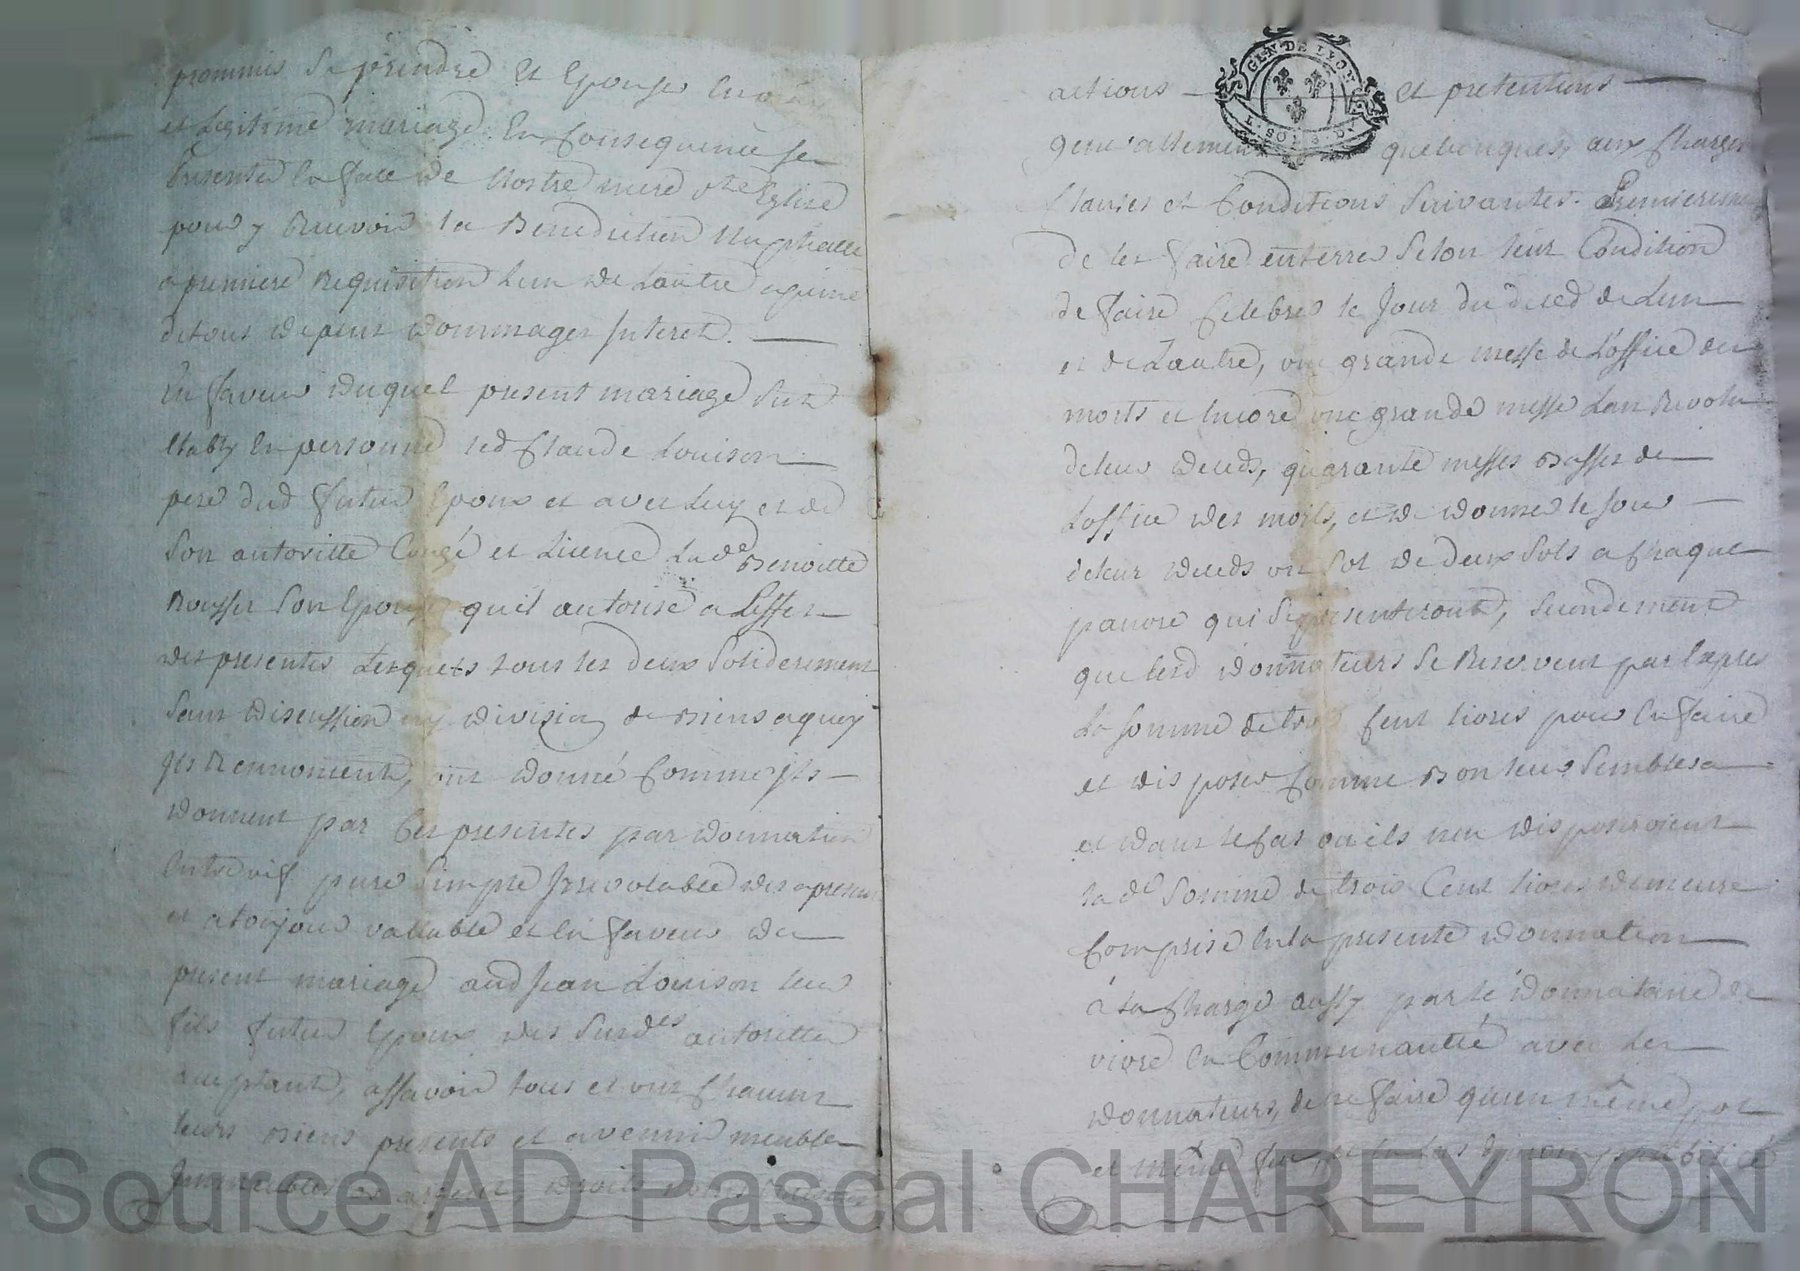 prommis se prendre et Epouser En vray
et Legitime mariage En Consequence se
Presenter la face de Nostre mere Ste Eglise
pour y Recevoir la Benediction Nuptialle
a premiere Requisition Lun de Lautre a peine
de tous depens dommages Interet.
En faveur duquel present mariage sest
Etably En personne led Claude Louison
pere dud futur Epoux et avec Luy et de
son autoritte Congé et Licence Lade Benoitte
Rousset son Epouse quil autorise a Leffet
des presentes Lesquels tous les deux solidairement
sans discussion ny division de Biens a quoy
Ils Renoncent, ont donné Comme ils
donnent par Ces presentes par donnation
Entrevif pure simple Irrevocable des a present
et a toujour vallable et En faveur du
present mariage aud Jean Louison leur
fils futur Epoux des susdes autorittes
acceptant, assavoir tous et un chacun
leurs Biens presents et avenir meubles
Immeubles droits noms
actions et pretentions
generallement quelconques, aux Charges
Clauses et Conditions suivantes. Premierement
de les faire enterrer selon leur Condition
de faire Celebrer le Jour du deced de Lun
et de Lautre, une grande messe de Loffice des
morts et Encore une grande messe Lan Revolu
de leur deceds, quarante messes Basses de
Loffice des morts, et de donner le jour
de leur deceds un sol de deux sols a Chaque
pauvre qui se presenteront, secondement
que lesd donnateurs se Reservent par Exprès
La somme de trois Cent livres pour En faire
et disposer Comme Bon leur semblera
et dans le Cas ou ils nen disposeroient
lade somme de trois Cent livres demeure
Comprise En la presente donnation
à la Charge aussy par le donnataire de
vivre En Communautté avec Les
donnateurs, de ne faire qu'un même pot
et même feu, et En Cas
GEN DE LYON
Source AD Pascal CHAREYRON